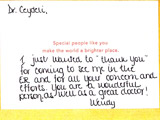 Dr. Ceyberi,
Special people like you
make the world a brighter place.
I just wanted to "thank you"
for coming to see me in the
ER and for all your concern and
efforts. You are a wonderful
person as well as a great doctor!
Wendy